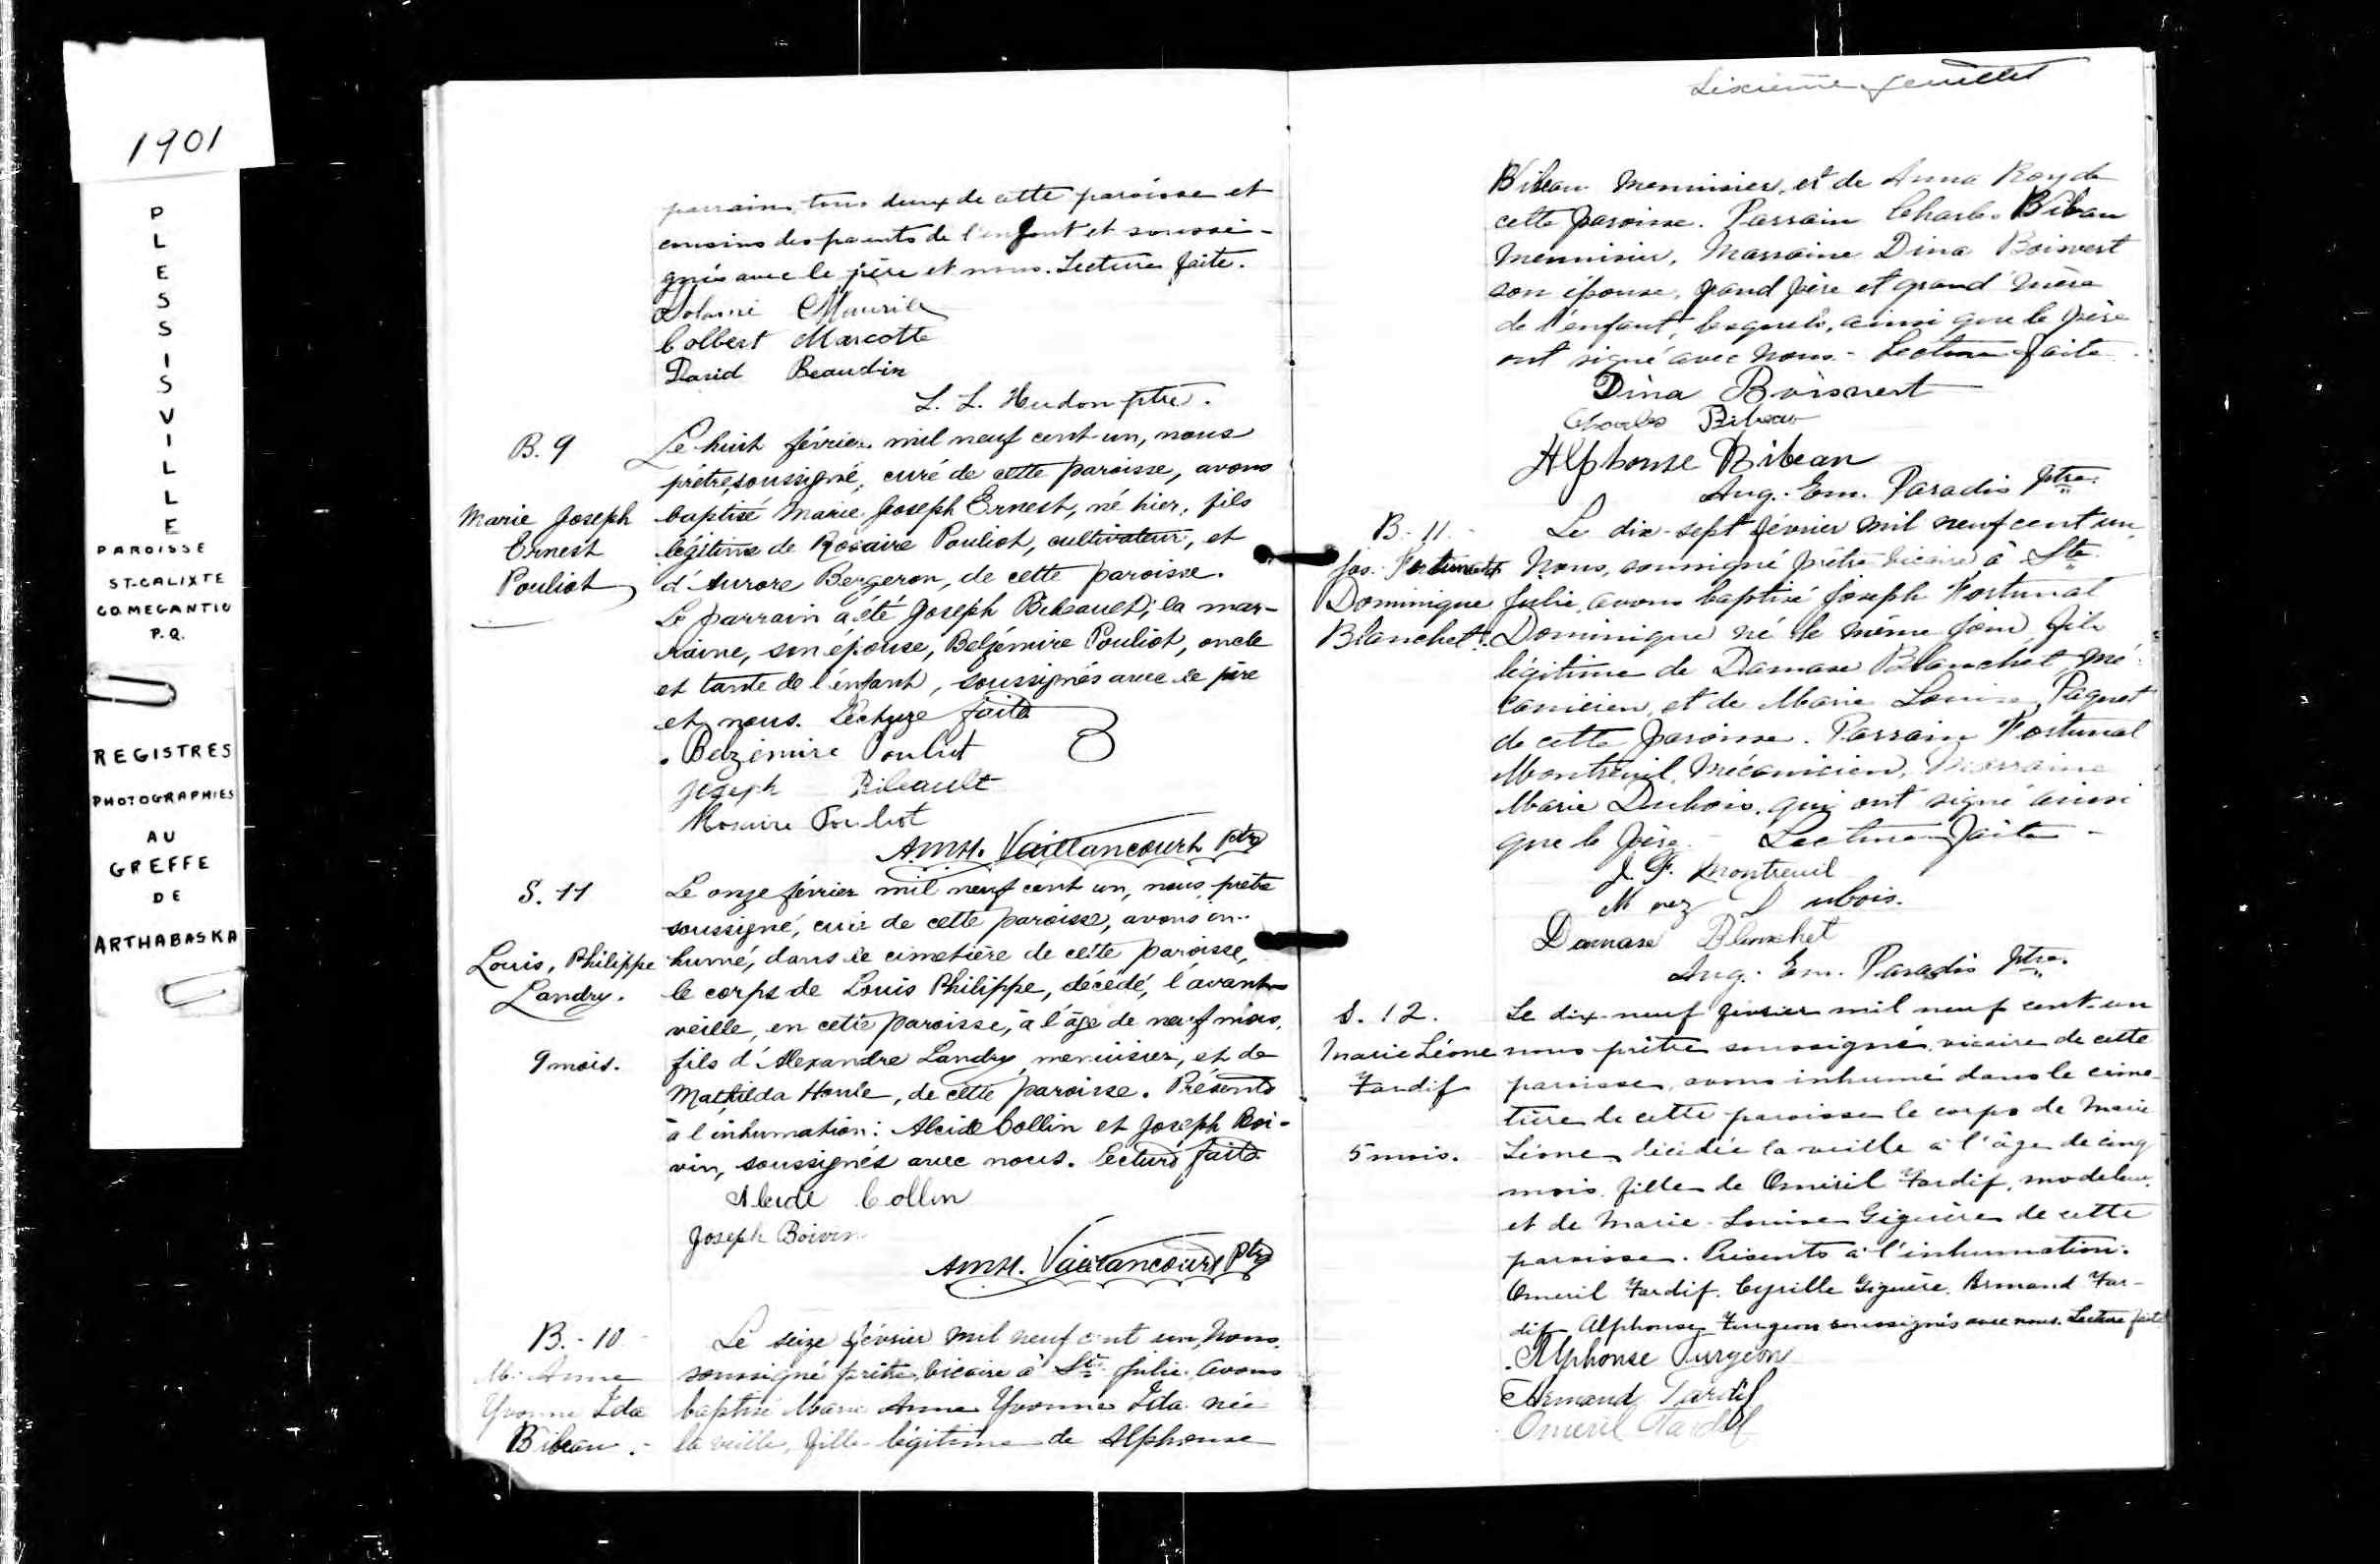 1901
PLESSISVILLE
PAROISSE
ST-CALIXTE
CO. MEGANTIC
P.Q.
REGISTRES
PHOTOGRAPHIES
AU
GREFFE
DE
ARTHABASKA
parrain, tous deux de cette paroisse et
cousins des parents de l'enfant et soussi-
gnés avec le père et nous. Lecture faite.
Colbert Marcotte
David Beaudin
L. L. Hudon ptre.
B. 9
Marie Joseph
Ernest
Pouliot
Le huit février mil neuf cent-un, nous
prêtre, soussigné, curé de cette paroisse, avons
baptisé Marie Joseph Ernest, né hier, fils
légitime de Rosaire Pouliot, cultivateur, et
d'Aurore Bergeron, de cette paroisse.
Le parrain a été Joseph Bibeault; la mar-
raine, son épouse, Belzémire Pouliot, oncle
et tante de l'enfant, soussignés avec le père
et nous. Lecture faite
Belzémire Pouliot
Joseph Bibeault
Rosaire Pouliot
A.M.H. Vaillancourt Ptre
S. 11
Louis, Philippe
Landry.
9 mois.
Le onze février mil neuf cent un, nous, prêtre
soussigné, curé de cette paroisse, avons in-
humé, dans le cimetière de cette paroisse,
le corps de Louis Philippe, décédé, l'avant-
veille, en cette paroisse, à l'âge de neuf mois,
fils d'Alexandre Landry, menuisier, et de
Mathilda Houle, de cette paroisse. Présents
à l'inhumation: Alcide Collin et Joseph Boi-
vin, soussignés avec nous. Lecture faite
Alcide Collin
Joseph Boivin
A.M.H. Vaillancourt Ptre
B. - 10
M. Anne
Yvonne Ida
Bibeau. -
Le seize février mil neuf cent un, Nous,
soussigné prêtre, vicaire à Ste Julie, avons
baptisé Marie Anne Yvonne Ida née
la veille, fille légitime de Alphonse
Sixième feuillet
Bibeau Menuisier, et de Anna Roy de
cette paroisse. Parrain Charles Bibeau
Menuisier, Marraine Dina Boisvert
son épouse, grand père et grand'mère
de l'enfant, lesquels, ainsi que le père
ont signé avec nous. - Lecture faite
Dina Boisvert
Charles Bibeau
Alphonse Bibeau
Aug. Em. Paradis Ptre.
B. - 11. -
Jos. Fortunat
Dominique
Blanchet.
Le dix-sept février mil neuf cent un,
Nous, soussigné prêtre vicaire à Ste
Julie, avons baptisé Joseph Fortunat
Dominique né le même jour, fils
légitime de Damase Blanchet, mé-
canicien, et de Marie Louise Paquet
de cette paroisse. Parrain Fortunat
Montreuil, Mécanicien, Marraine
Marie Dubois, qui ont signé ainsi
que le père. - Lecture faite -
J. F. Montreuil
Dubois.
Damase Blanchet
Aug. Em. Paradis Ptre.
S. 12.
Marie Léone
Tardif
5 mois.
Le dix-neuf février mil neuf cent-un
nous prêtre soussigné, vicaire de cette
paroisse, avons inhumé dans le cime-
tière de cette paroisse le corps de Marie
Léone, décédée la veille à l'âge de cinq
mois, fille de Omeril Tardif, modeleur,
et de Marie-Louise Giguère de cette
paroisse. Présents à l'inhumation:
Omeril Tardif. Cyrille Giguère. Armand Tar-
dif. Alphonse Turgeon soussignés avec nous. Lecture faite
Alphonse Turgeon
Armand Tardif
Omeril Tardif